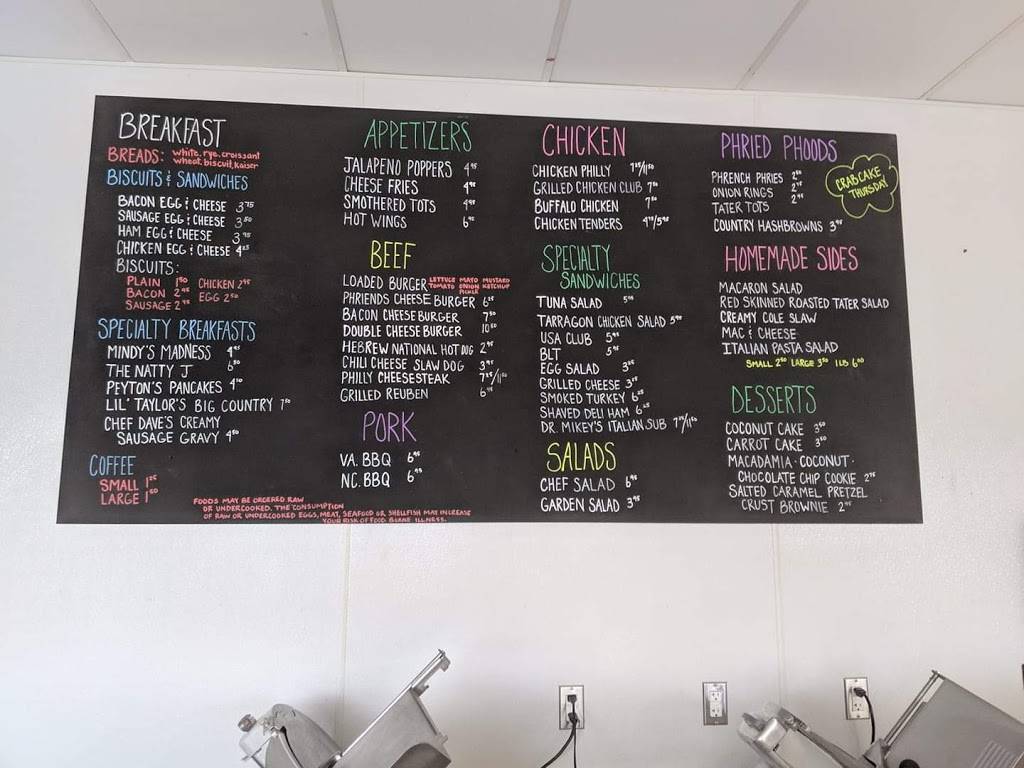 BREAKFAST
BREADS: white, rye, croissant
wheat, biscuit, kaiser
BISCUITS & SANDWICHES
BACON EGG & CHEESE 3.75
SAUSAGE EGG & CHEESE 3.50
HAM EGG & CHEESE 3.95
CHICKEN EGG & CHEESE
BISCUITS:
PLAIN CHICKEN 2.95
BACON 2.95 EGG 2.50
SAUSAGE 2.95
SPECIALTY BREAKFASTS
MINDY'S MADNESS
THE NATTY J
PEYTON'S PANCAKES
LIL' TAYLOR'S BIG COUNTRY
CHEF DAVE'S CREAMY
SAUSAGE GRAVY 4.50
COFFEE
SMALL 1.25
LARGE 1.50
FOODS MAY BE ORDERED RAW
OR UNDERCOOKED. THE CONSUMPTION
OF RAW OR UNDERCOOKED EGGS, MEAT, SEAFOOD OR SHELLFISH MAY INCREASE
YOUR RISK OF FOOD BORNE ILLNESS.
APPETIZERS
JALAPENO POPPERS 4.95
CHEESE FRIES 4.95
SMOTHERED TOTS 4.95
HOT WINGS 6.95
BEEF
LOADED BURGER LETTUCE MAYO MUSTARD
TOMATO ONION KETCHUP
PICKLE
PHRIENDS CHEESE BURGER
BACON CHEESE BURGER 7.50
DOUBLE CHEESE BURGER 10.50
HEBREW NATIONAL HOT DOG 2.95
CHILI CHEESE SLAW DOG 3.95
PHILLY CHEESESTEAK
GRILLED REUBEN 6.95
PORK
VA. BBQ 6.95
NC. BBQ 6.95
CHICKEN
CHICKEN PHILLY
GRILLED CHICKEN CLUB 7.50
BUFFALO CHICKEN 7.50
CHICKEN TENDERS
SPECIALTY
SANDWICHES
TUNA SALAD 5.95
TARRAGON CHICKEN SALAD 5.95
USA CLUB 5.95
BLT 5.95
EGG SALAD
GRILLED CHEESE
SMOKED TURKEY 6.25
SHAVED DELI HAM 6.25
DR. MIKEY'S ITALIAN SUB
SALADS
CHEF SALAD 6.95
GARDEN SALAD 3.95
PHRIED PHOODS
PHRENCH PHRIES
ONION RINGS 2.95
TATER TOTS 2.95
COUNTRY HASHBROWNS 3.95
CRAB CAKE
THURSDAY
HOMEMADE SIDES
MACARON SALAD
RED SKINNED ROASTED TATER SALAD
CREAMY COLE SLAW
MAC & CHEESE
ITALIAN PASTA SALAD
SMALL 2.50 LARGE 3.50 1LB 6.00
DESSERTS
COCONUT CAKE 3.50
CARROT CAKE 3.50
MACADAMIA · COCONUT ·
CHOCOLATE CHIP COOKIE
SALTED CARAMEL PRETZEL
CRUST BROWNIE